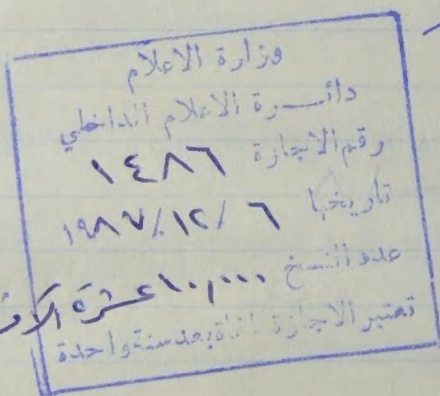 وزارة الاعلام
دائـــرة الاعلام الداخلي
رقم الاجازة ١٤٨٦
تاريخها ٦ /١٢/ ١٩٨٧
عدد النسخ ١٠,٠٠٠ عشرة آلاف
تعتبر الاجازة ملغاة بعد سنة واحدة